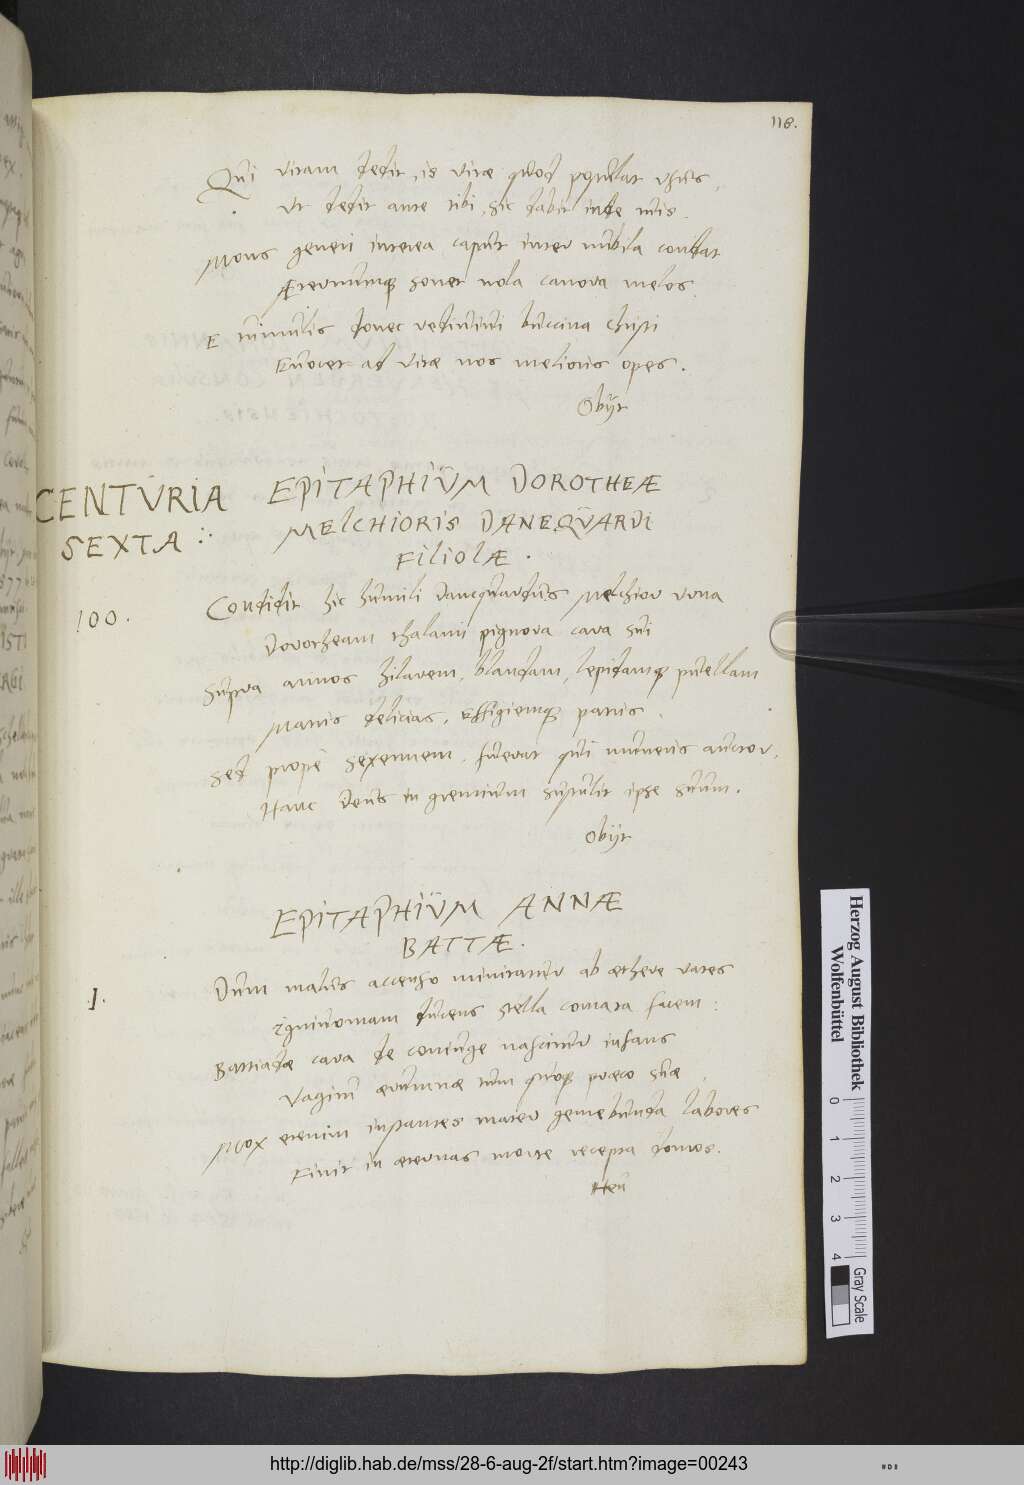 118.
Qui vitam dedit, is vitæ quod postulat usus,
Ut dedit ante tibi, sic dabit inde tuis.
Mons generi interea caput inter nubila condat
Æternumq; sonet nola canora melos.
E tumulis donec redimiti buccina Christi
Evocet ad vitæ nos melioris opes.
Obijt
CENTURIA
SEXTA
EPITAPHIUM DOROTHEÆ
MELCHIORIS DANEQUARDI
FILIOLÆ.
100.
Condidit hic humili Danequardus Melchior urna
Dorotheam thalami pignora cara sui
Supra annos hilarem, blandam, lepidamq; puellam
Matris delicias, effigiemq; patris.
Sed prope sexennem, fuerat qui muneris auctor,
Hanc Deus in gremium sustulit ipse suum.
Obijt
EPITAPHIUM ANNÆ
BATTÆ.
1.
Dum malus accenso minitatur ab æthere vates
Ignivomam ducens stella comata facem:
Battiadæ cara de coniuge nascitur infans
Vagitu ærumnæ tum quoq; præco suæ.
Mox etenim instantes mater gemebunda labores
Finit in æternas morte recepta domos.
Heu
Herzog August Bibliothek
Wolfenbüttel
0 1 2 3 4
Gray Scale
http://diglib.hab.de/mss/28-6-aug-2f/start.htm?image=00243